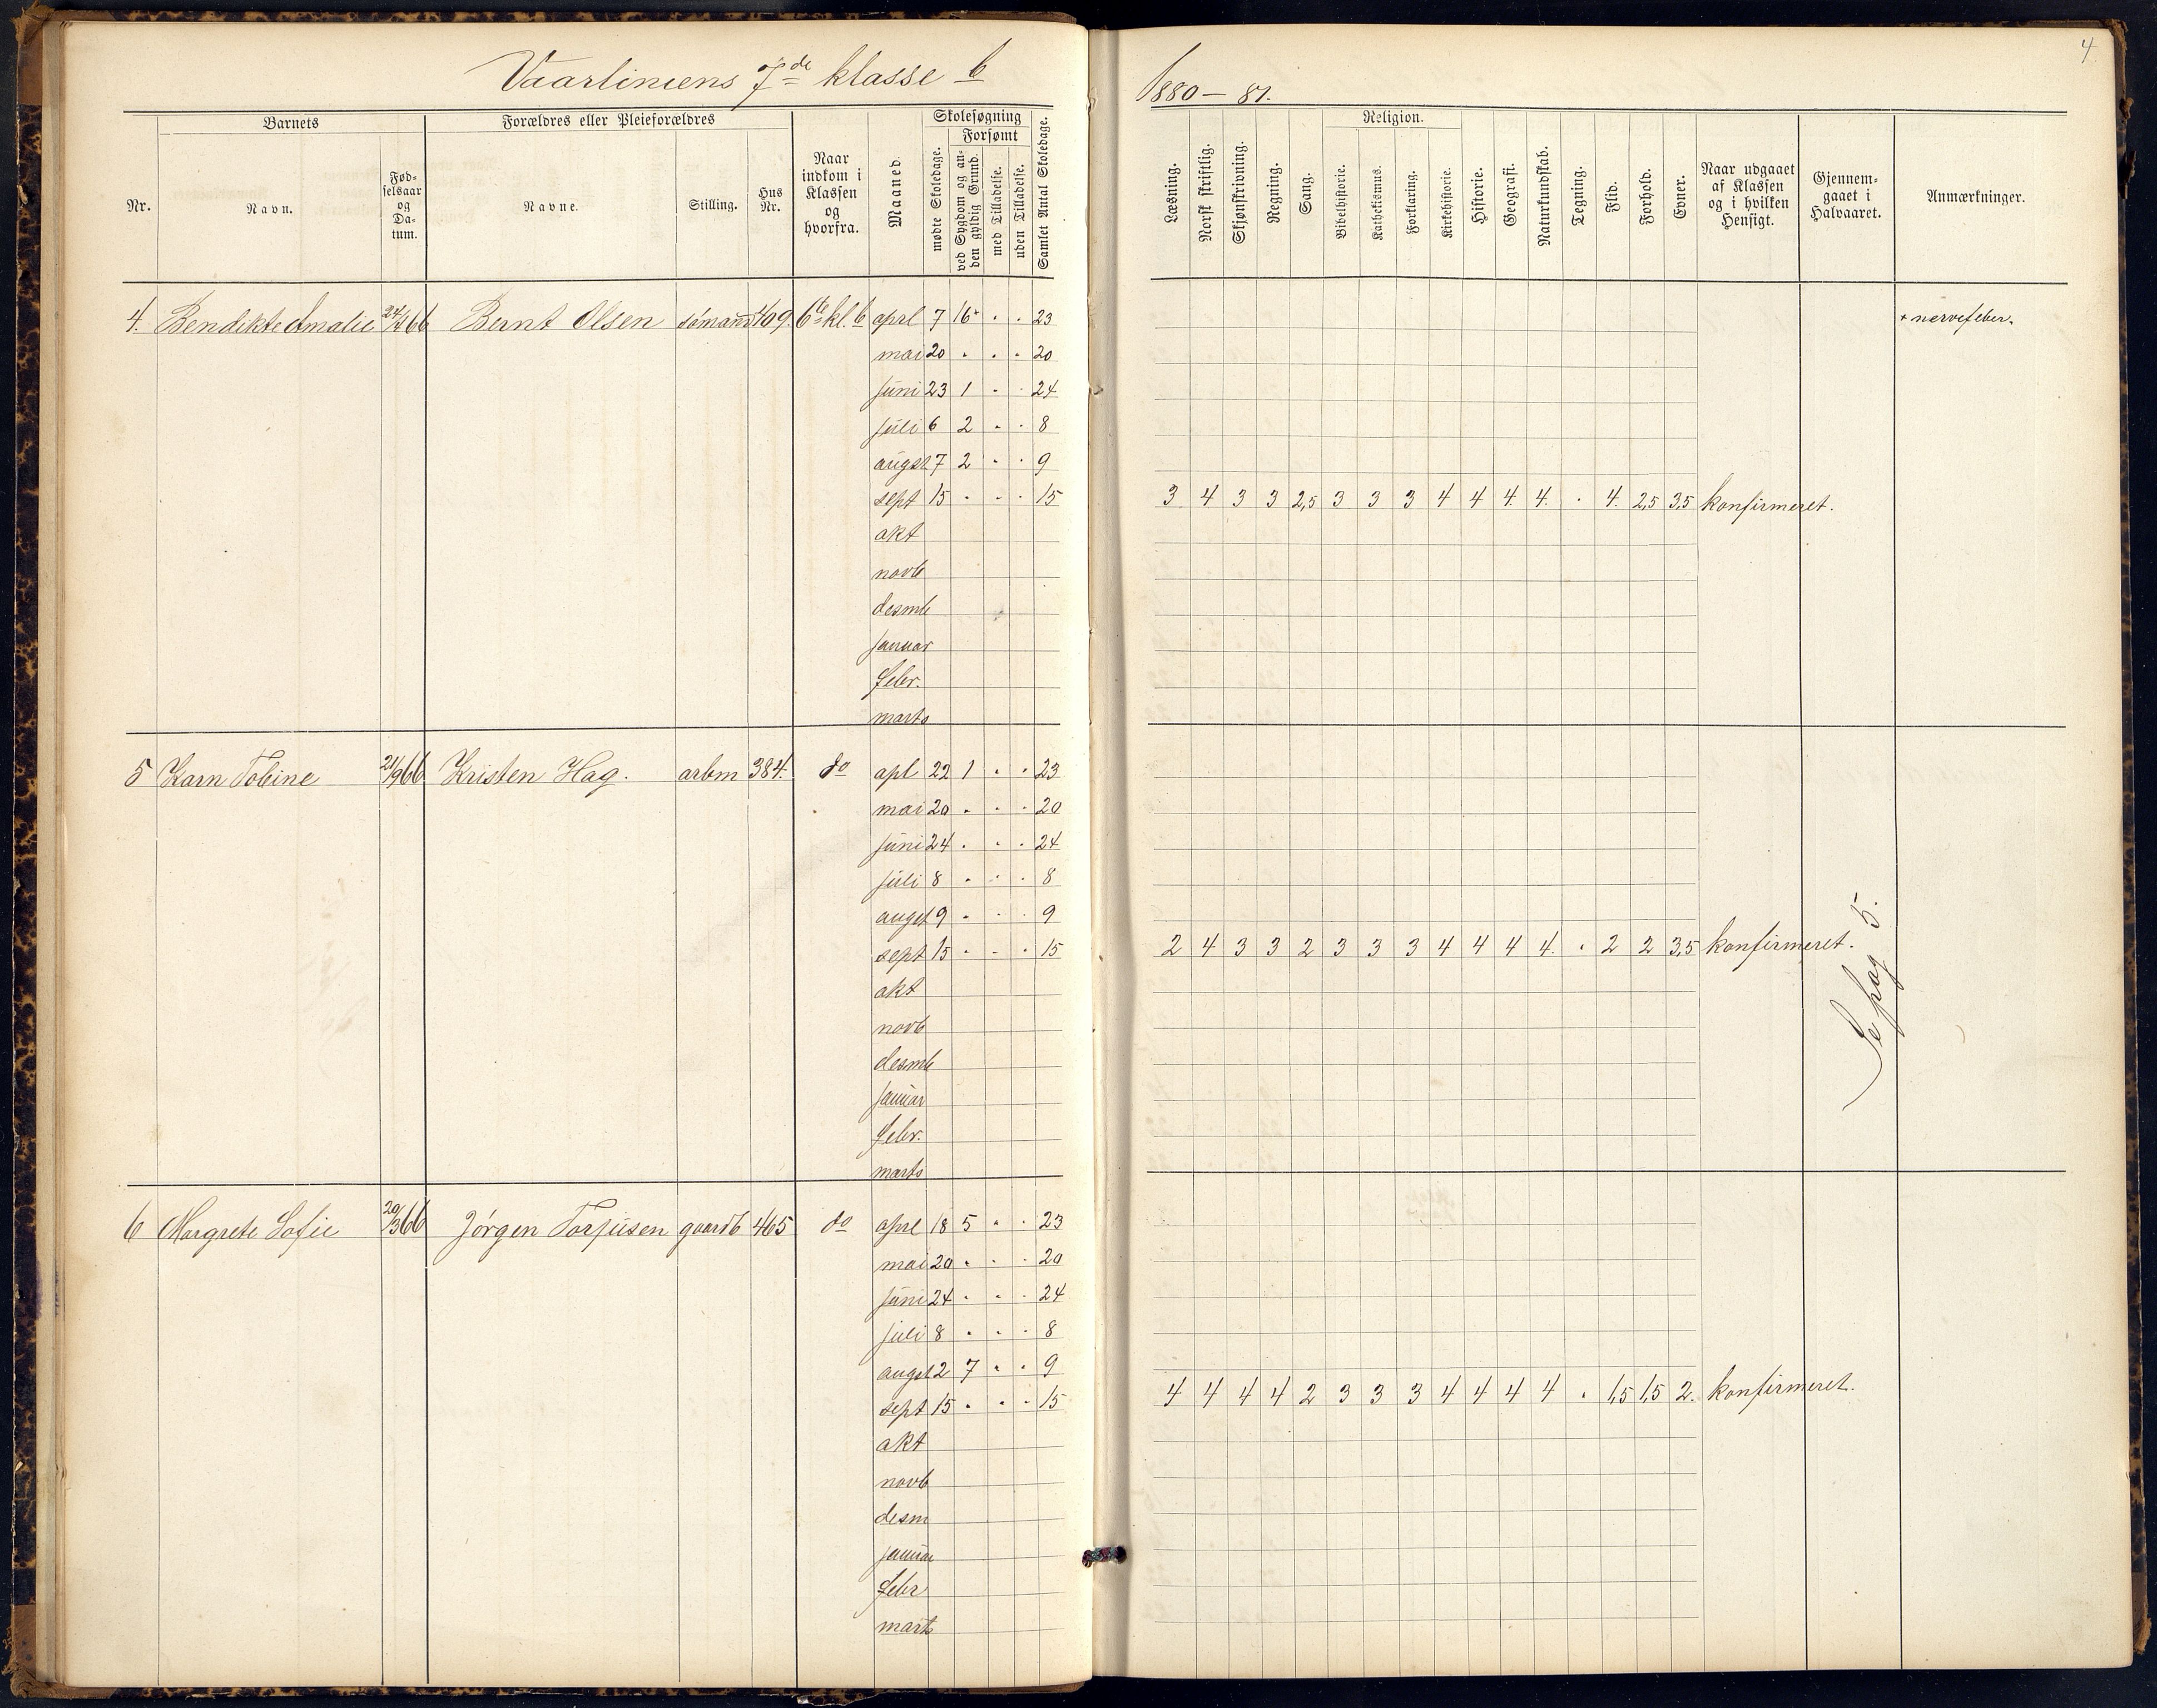 Vaarliniens 7de klasse b
1880 – 81.
4
Barnets
Forældres eller Pleieforældres
Nr.
Navn.
Fød-
selsaar
og
Da-
tum.
Navne.
Stilling.
Hus
Nr.
Naar
indkom i
Klassen
og
hvorfra.
Maaned.
Skolesøgning
mødte Skoledage.
Forsømt
ved Sygdom og an-
den gyldig Grund.
med Tilladelse.
uden Tilladelse.
Samlet Antal Skoledage.
Læsning.
Norsk skriftlig.
Skjønskrivning.
Regning.
Sang.
Religion.
Bibelhistorie.
Katekismus.
Forklaring.
Kirkehistorie.
Historie.
Geografi.
Naturkundskab.
Tegning.
Flid.
Forhold.
Evner.
Naar udgaaet
af Klassen
og i hvilken
Hensigt.
Gjennem-
gaaet i
Halvaaret.
Anmærkninger.
4. Bendikte Amalie 66 Bernt Olsen sømand 409. 6te kl. b aprl 7 16+ . . 23 + nervefeber.
mai 20 . . . 20
juni 23 1 . . 24
juli 6 2 . . 8
augst 7 2 . . 9
sept 15 . . . 15 3 4 3 3 2,5 3 3 3 4 4 4. 4. . 4. 2,5 3,5 konfirmeret.
okt
novb
desmb
januar
febr.
marts
5 Karn Tobine 21/9 66 Kristen Hag. arbm 384. do apl 22 1 . . 23
mai 20 . . . 20
juni 24 . . . 24
juli 8 . . . 8
augst 9 . . . 9
sept 15 . . . 15 2 4 3 3 2 3 3 3 4 4 4 4. . 2 2 3,5 konfirmeret.
Se pag 5.
okt
novb
desmb
januar
febr.
marts
6 Margrete Sofie 20/3 66 Jørgen Torjusen gaardb 465 do aprl 18 5 . . 23
mai 20 . . . 20
juni 24 . . . 24
juli 8 . . . 8
augst 2 7 . . 9
sept 15 . . . 15 4 4 4 4 2 3 3 3 4 4 4 4 . 1,5 1,5 2. konfirmeret.
okt
novb
desm
januar
febr
mart